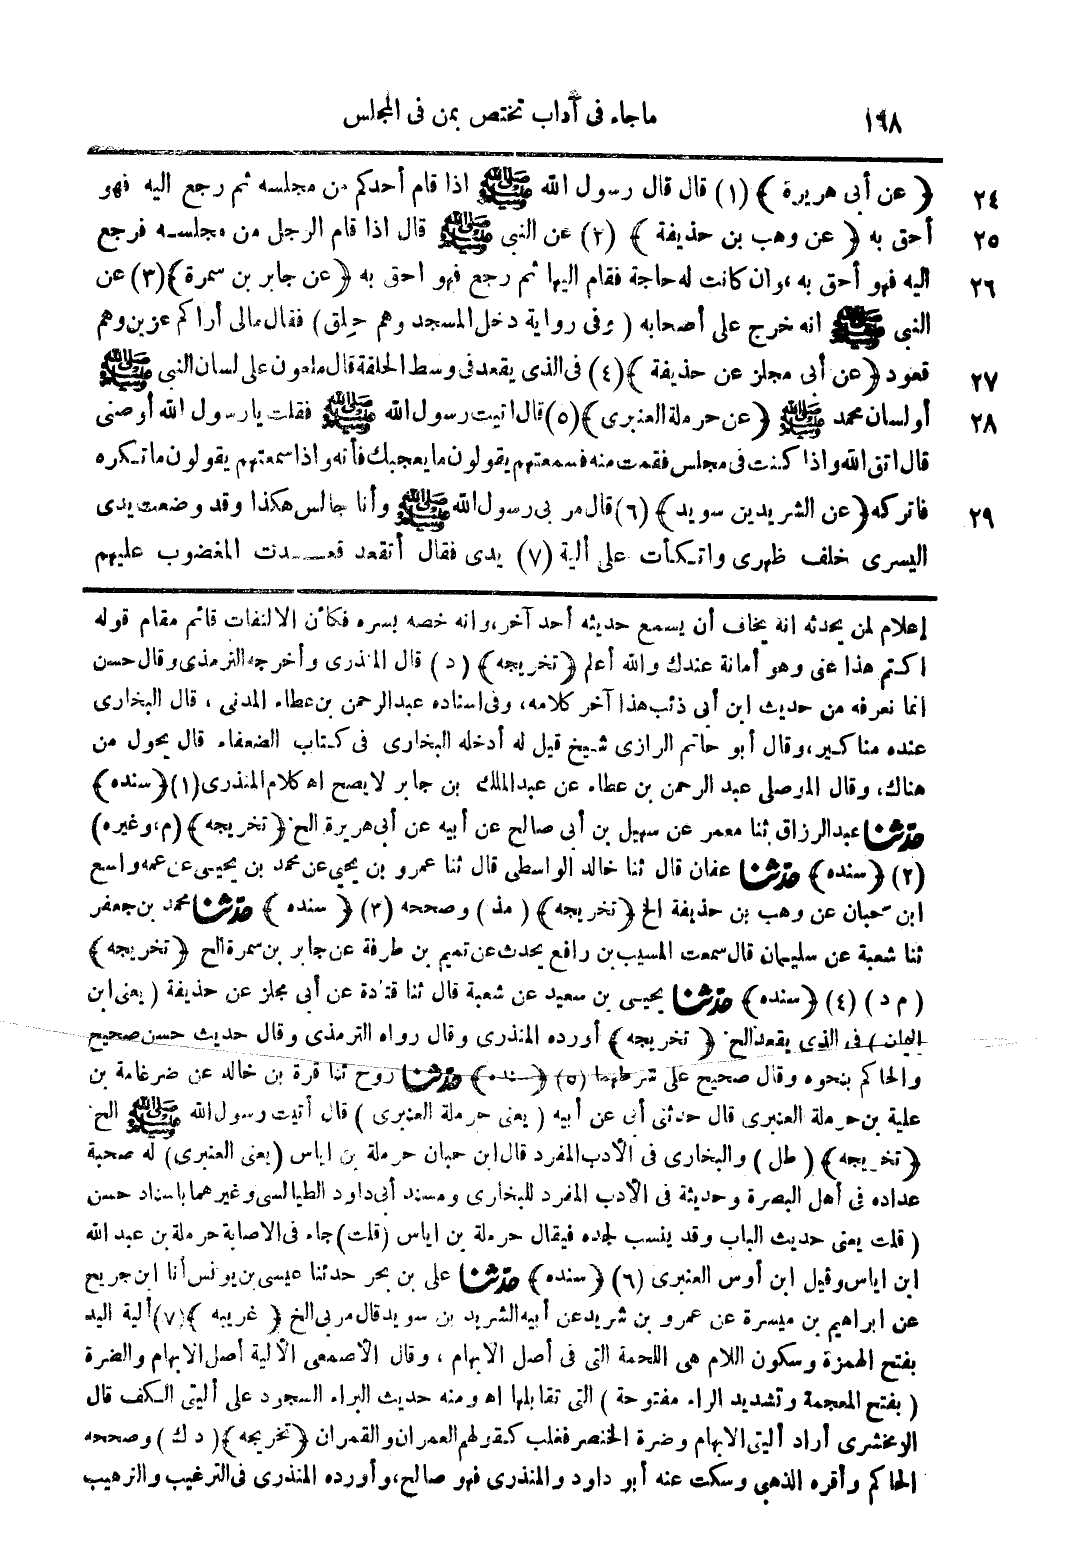 ١٩٨ ماجاء فى آداب تختص بمن فى المجلس
٢٤ ﴿ عن أبى هريرة ﴾ (١) قال قال رسول الله ﷺ اذا قام أحدكم من مجلسه ثم رجع اليه فهو
٢٥ أحق به ﴿ عن وهب بن حذيفة ﴾ (٢) عن النبى ﷺ قال اذا قام الرجل من مجلسه فرجع
٢٦ اليه فهو أحق به ،وان كانت له حاجة فقام اليها ثم رجع فهو احق به ﴿عن جابر بن سمرة﴾(٣) عن
النبى ﷺ انه خرج على أصحابه ( وفى رواية دخل المسجد وهم حِلق) فقال مالى أراكم عزين وهم
٢٧ قعود ﴿عن أبى مجلز عن حذيفة ﴾(٤) فى الذى يقعد فى وسط الحلقة قال ملعون على لسان النبى ﷺ
٢٨ أو لسان محمد ﷺ ﴿عن حرملة العنبرى﴾(٥)قال اتيت رسول الله ﷺ فقلت يارسول الله أوصنى
قال اتق الله واذا كنت فى مجلس فقمت منه فسمعتهم يقولون ما يعجبك فأته واذا سمعتهم يقولون ماتكره
٢٩ فاتركه﴿عن الشريد بن سويد﴾ (٦)قال مر بى رسول الله ﷺ وأنا جالس هكذا وقد وضعت يدى
اليسرى خلف ظهرى واتكأت على ألية (٧) يدى فقال أتقعد قعدت المغضوب عليهم
إعلام لمن يحدثه انه يخاف أن يسمع حديثه أحد آخر،وانه خصه بسره فكأن الالتفات قائم مقام قوله
اكتم هذا عنى وهو أمانة عندك والله أعلم ﴿تخريجه﴾ (د) قال المنذرى وأخرجه الترمذى وقال حسن
انما نعرفه من حديث ابن أبى ذئب هذا آخر كلامه، وفى اسناده عبدالرحمن بن عطاء المدنى ، قال البخارى
عنده مناكير،وقال أبو حاتم الرازى شيخ قيل له أدخله البخارى فى كتاب الضعفاء قال يحول من
هناك، وقال الموصلى عبد الرحمن بن عطاء عن عبدالملك بن جابر لايصح اه كلام المنذرى(١)﴿سنده﴾
حدثنا عبدالرزاق ثنا معمر عن سهيل بن أبى صالح عن أبيه عن أبى هريرة الخ ﴿تخريجه﴾(م،وغيره)
(٢) ﴿سنده﴾ حدثنا عفان قال ثنا خالد الواسطى قال ثنا عمرو بن يحيى عن محمد بن يحيى عن عمه واسع
ابن حبان عن وهب بن حذيفة الخ ﴿تخريجه﴾ (مذ) وصححه (٣) ﴿ سنده ﴾ حدثنا محمد بن جعفر
ثنا شعبة عن سليمان قال سمعت المسيب بن رافع يحدث عن تميم بن طرفة عن جابر بن سمرة الخ ﴿تخريجه﴾
(م د) (٤) ﴿سنده﴾ حدثنا يحيى بن سعيد عن شعبة قال ثنا قتادة عن أبى مجلز عن حذيفة (يعنى ابن
اليمان) فى الذى يقعد الخ ﴿ تخريجه ﴾ أورده المنذرى وقال رواه الترمذى وقال حديث حسن صحيح
والحاكم بنحوه وقال صحيح على شرطهما (٥) ﴿سنده﴾ حدثنا روح ثنا قرة بن خالد عن ضرغامة بن
علية بن حرملة العنبرى قال حدثنى أبى عن أبيه (يعنى حرملة العنبرى) قال أتيت رسول الله ﷺ الخ
﴿تخريجه﴾ (طل) والبخارى فى الأدب المفرد قال ابن حبان حرملة بن اياس (يعنى العنبرى) له صحبة
عداده فى أهل البصرة وحديثه فى الأدب المفرد للبخارى ومسند أبى داود الطيالسى وغيرهما باسناد حسن
(قلت يعنى حديث الباب وقد ينسب لجده فيقال حرملة بن اياس (قلت) جاء فى الاصابة حرملة بن عبد الله
ابن اياس وقيل ابن أوس العنبرى (٦) ﴿سنده﴾ حدثنا على بن بحر حدثنا عيسى بن يونس أنا ابن جريج
عن ابراهيم بن ميسرة عن عمرو بن شريد عن أبيه الشريد بن سويد قال مر بى الخ ﴿ غريبه ﴾(٧)ألية اليد
بفتح الهمزة وسكون اللام هى اللحمة التى فى أصل الابهام ، وقال الأصمعى الألية أصل الابهام والضرة
(بفتح المعجمة وتشديد الراء مفتوحة) التى تقابلها اه ومنه حديث البراء السجود على أليتى الكف قال
الزمخشرى أراد أليتى الابهام وضرة الخنصر فغلب كقولهم العمران والقمران ﴿تخريجه﴾(د ك) وصححه
الحاكم وأقره الذهبى وسكت عنه أبو داود والمنذرى فهو صالح،وأورده المنذرى فى الترغيب والترهيب